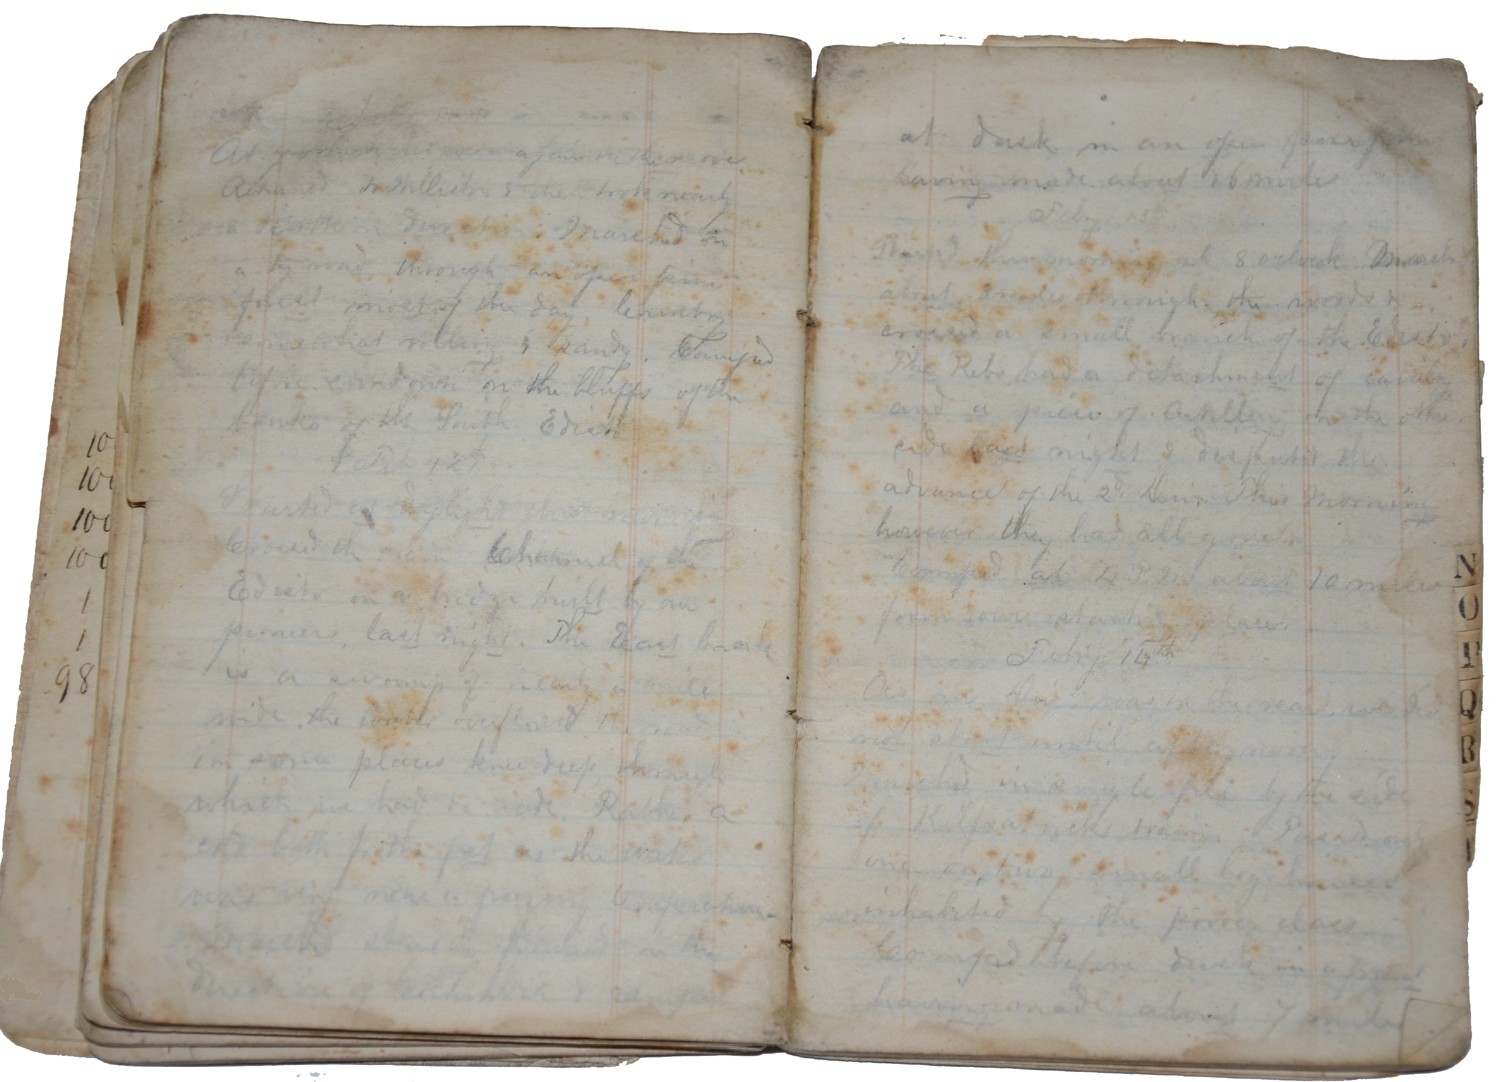 10
100
100
100
1
1
98
At again on the move
Returned to Williston & then took nearly
a northern direction. Marched on
a by road, through an open pine
forest most of the day. Country
somewhat rolling & sandy. Camped
before sundown on the bluffs of the
banks of the South Edisto
Feby 12th
Started at daylight this morning
Crossed the main Channel of the
Edisto on a bridge built by our
pioneers, last night. The East bank
is a swamp of nearly a mile
wide. the water overflowed the road
in some places knee deep through
which we had to wade. Rather a
cold bath for the feet as the water
was very near a freezing temperature
Marched steadily forward in the
direction of & camped
at dusk in an open pine
having made about 16 miles
Feby 13th
Started this morning at 8 oclock March
about miles through the woods &
crossed a small branch of the Edisto.
The Rebs had a detachment of cavalry
and a piece of Artillery on the other
side last night & disputed the
advance of the 2d Divn This morning
however they had all gone.
Camped at 4 P.M. about 10 miles
from our starting place
Feby 14th
As our Div. was in the rear, we did
not start until after noon.
Marched in single file by the side
of Kilpatricks train. Passed only
one or two small log houses
inhabited by the poorer class
Camped before dusk in a forest
having made about 7 miles
N
O
P
Q
R
S